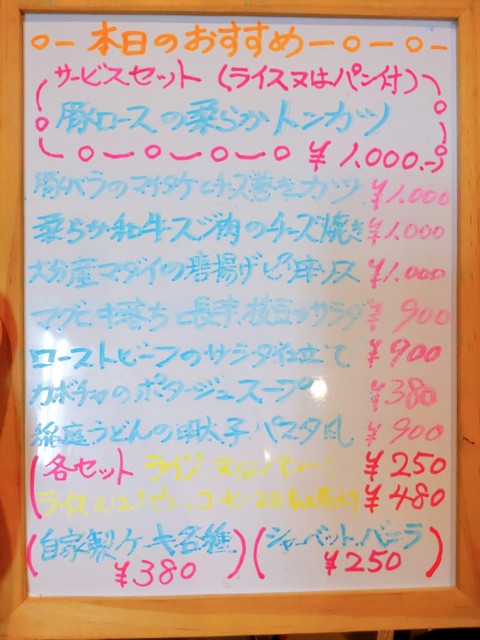 本日のおすすめ
サービスセット (ライス又はパン付)
豚ロースの柔らかトンカツ
¥1.000.-
豚バラのマイタケとチーズ巻きカツ ¥1.000
柔らか和牛スジ肉のチーズ焼き ¥1.000
大分産マダイの唐揚げピリ辛ソース ¥1.000
マグロ中落ちと長芋.枝豆のサラダ ¥900
ローストビーフのサラダ仕立て ¥900
カボチャのポタージュスープ ¥380
稲庭うどんの明太子パスタ風 ¥900
各セット ライス又はパン ¥250
ライス又はパン、コーヒー ¥480
(自家製ケーキ各種 ¥380)
(シャーベット.バニラ ¥250)